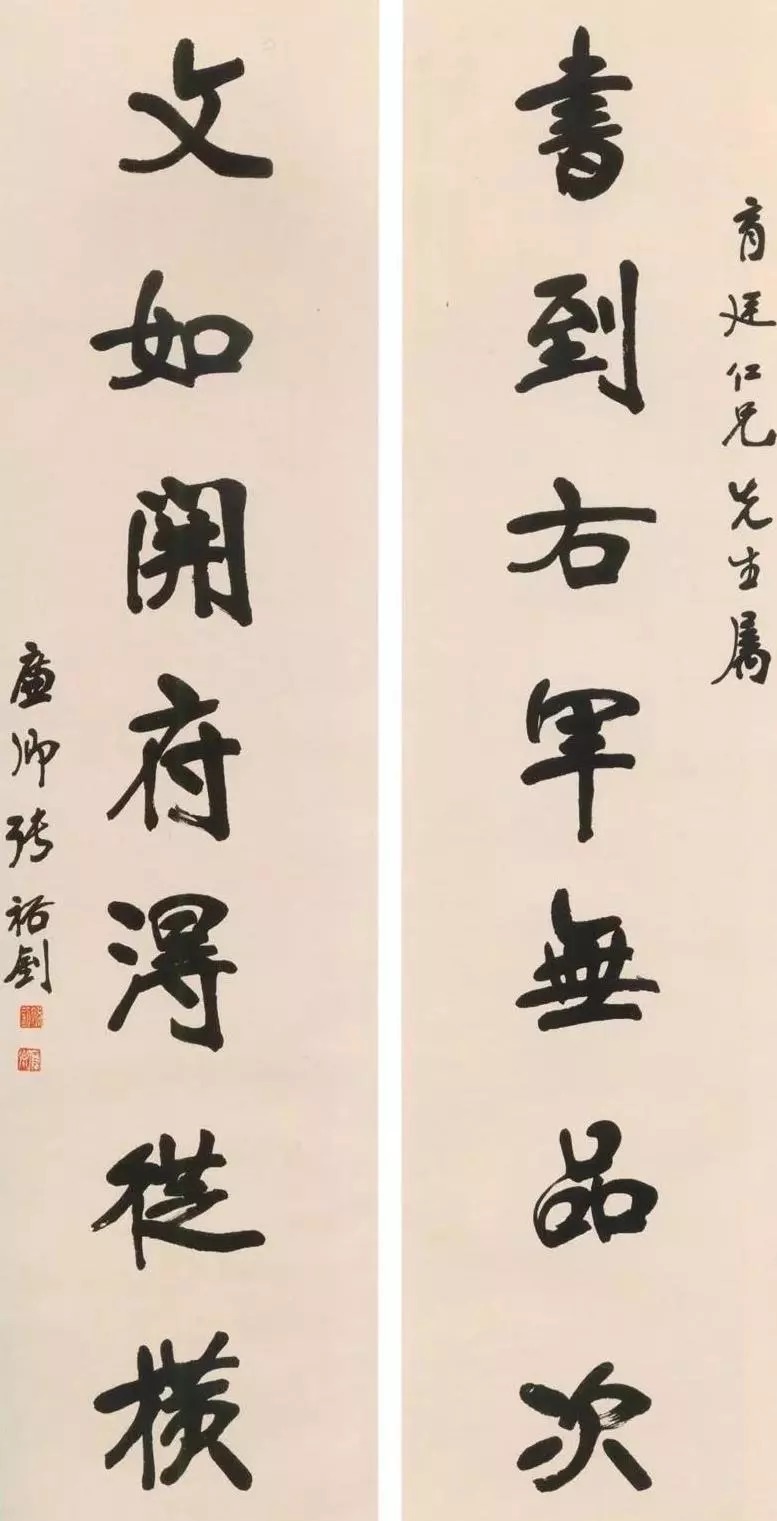 育廷仁兄先生屬
書到右軍無品次
文如開府得從橫
廉卿張裕釗